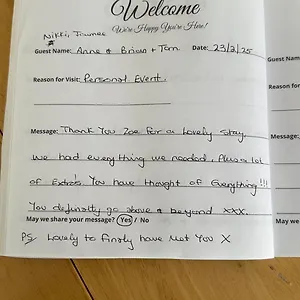 Welcome
We're Happy You're Here!
Nikki, Townee
Guest Name: Anne & Brian + Tom Date: 23/2/25
Guest Nam
Reason for Visit: Personal Event.
Reason for
Message: Thank You Zoe for a lovely stay
Message:
we had everything we needed, Plus a lot
of Extra's. You have thought of Everything!!!
You definatly go above & beyond xxx.
May we share your message? Yes / No
May we
PS Lovely to finally have Met You X